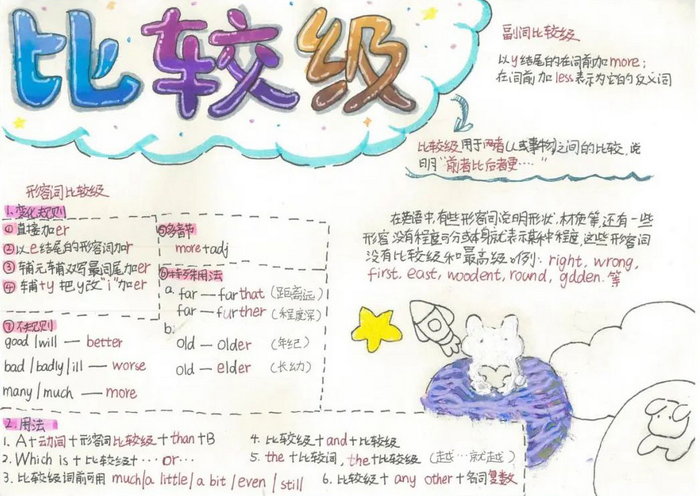 比较级
副词比较级
以y结尾的在词前加more；
在词前加less表示为它的反义词
比较级用于两者(人或事物)之间的比较，说
明"前者比后者更……"
形容词比较级
1.变化规则
①直接加er
②以e结尾的形容词加r
③辅元辅双写最词尾加er
④辅+y 把y改"i"加er
⑤多音节
more+adj
⑥特殊用法
a.
far — farthat (距离远)
far — further (程度深)
b.
old — older (年纪)
old — elder (长幼)
⑦不规则
good/will — better
bad/badly/ill — worse
many/much — more
在英语中，有些形容词说明形状、材质等，还有一些
形容没有程度可分或本身就表示某种程度，这些形容词
没有比较级和最高级。例：right, wrong,
first, east, woodent, round, gdden. 等
2.用法
1. A+动词+形容词比较级+than+B
2. Which is+比较级+…or…
3. 比较级词前可用 much/a little/a bit/even/still
4. 比较级+and+比较级
5. the+比较词，the+比较级 (越…就越)
6. 比较级+any other+名词复数